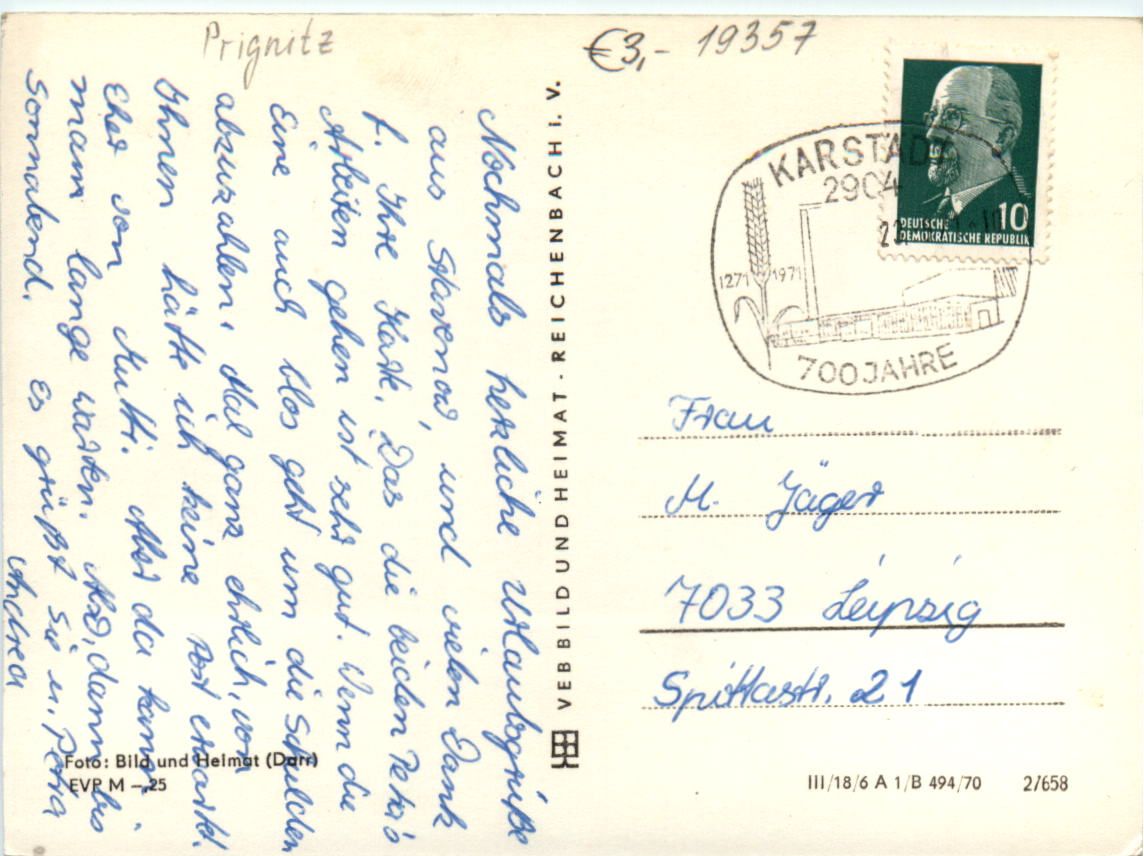 Prignitz
€3,- 19357
Nochmals herzliche Urlaubsgrüße
aus Stavenow, und vielen Dank
f. Ihre Karte. Das die beiden Petra's
Arbeiten gehen ist sehr gut. Wenn du
Eine auch blos geht um die Schulden
abzuzahlen. Mal ganz ehrlich, von
Ihnen hätte ich keine Post erwartet.
Eher von Mutti. Aber da kann
mann lange warten. Also, dann bis
Sonnabend. Es grüßt Sie u. Petra
Andrea
Foto: Bild und Heimat (Darr)
EVP M –.25
VEB BILD UND HEIMAT · REICHENBACH I. V.
KARSTÄDT
2904
1271 1971
700 JAHRE
10
DEUTSCHE
DEMOKRATISCHE REPUBLIK
Frau
M. Jäger
7033 Leipzig
Spittastr. 21
III/18/6 A 1/B 494/70 2/658